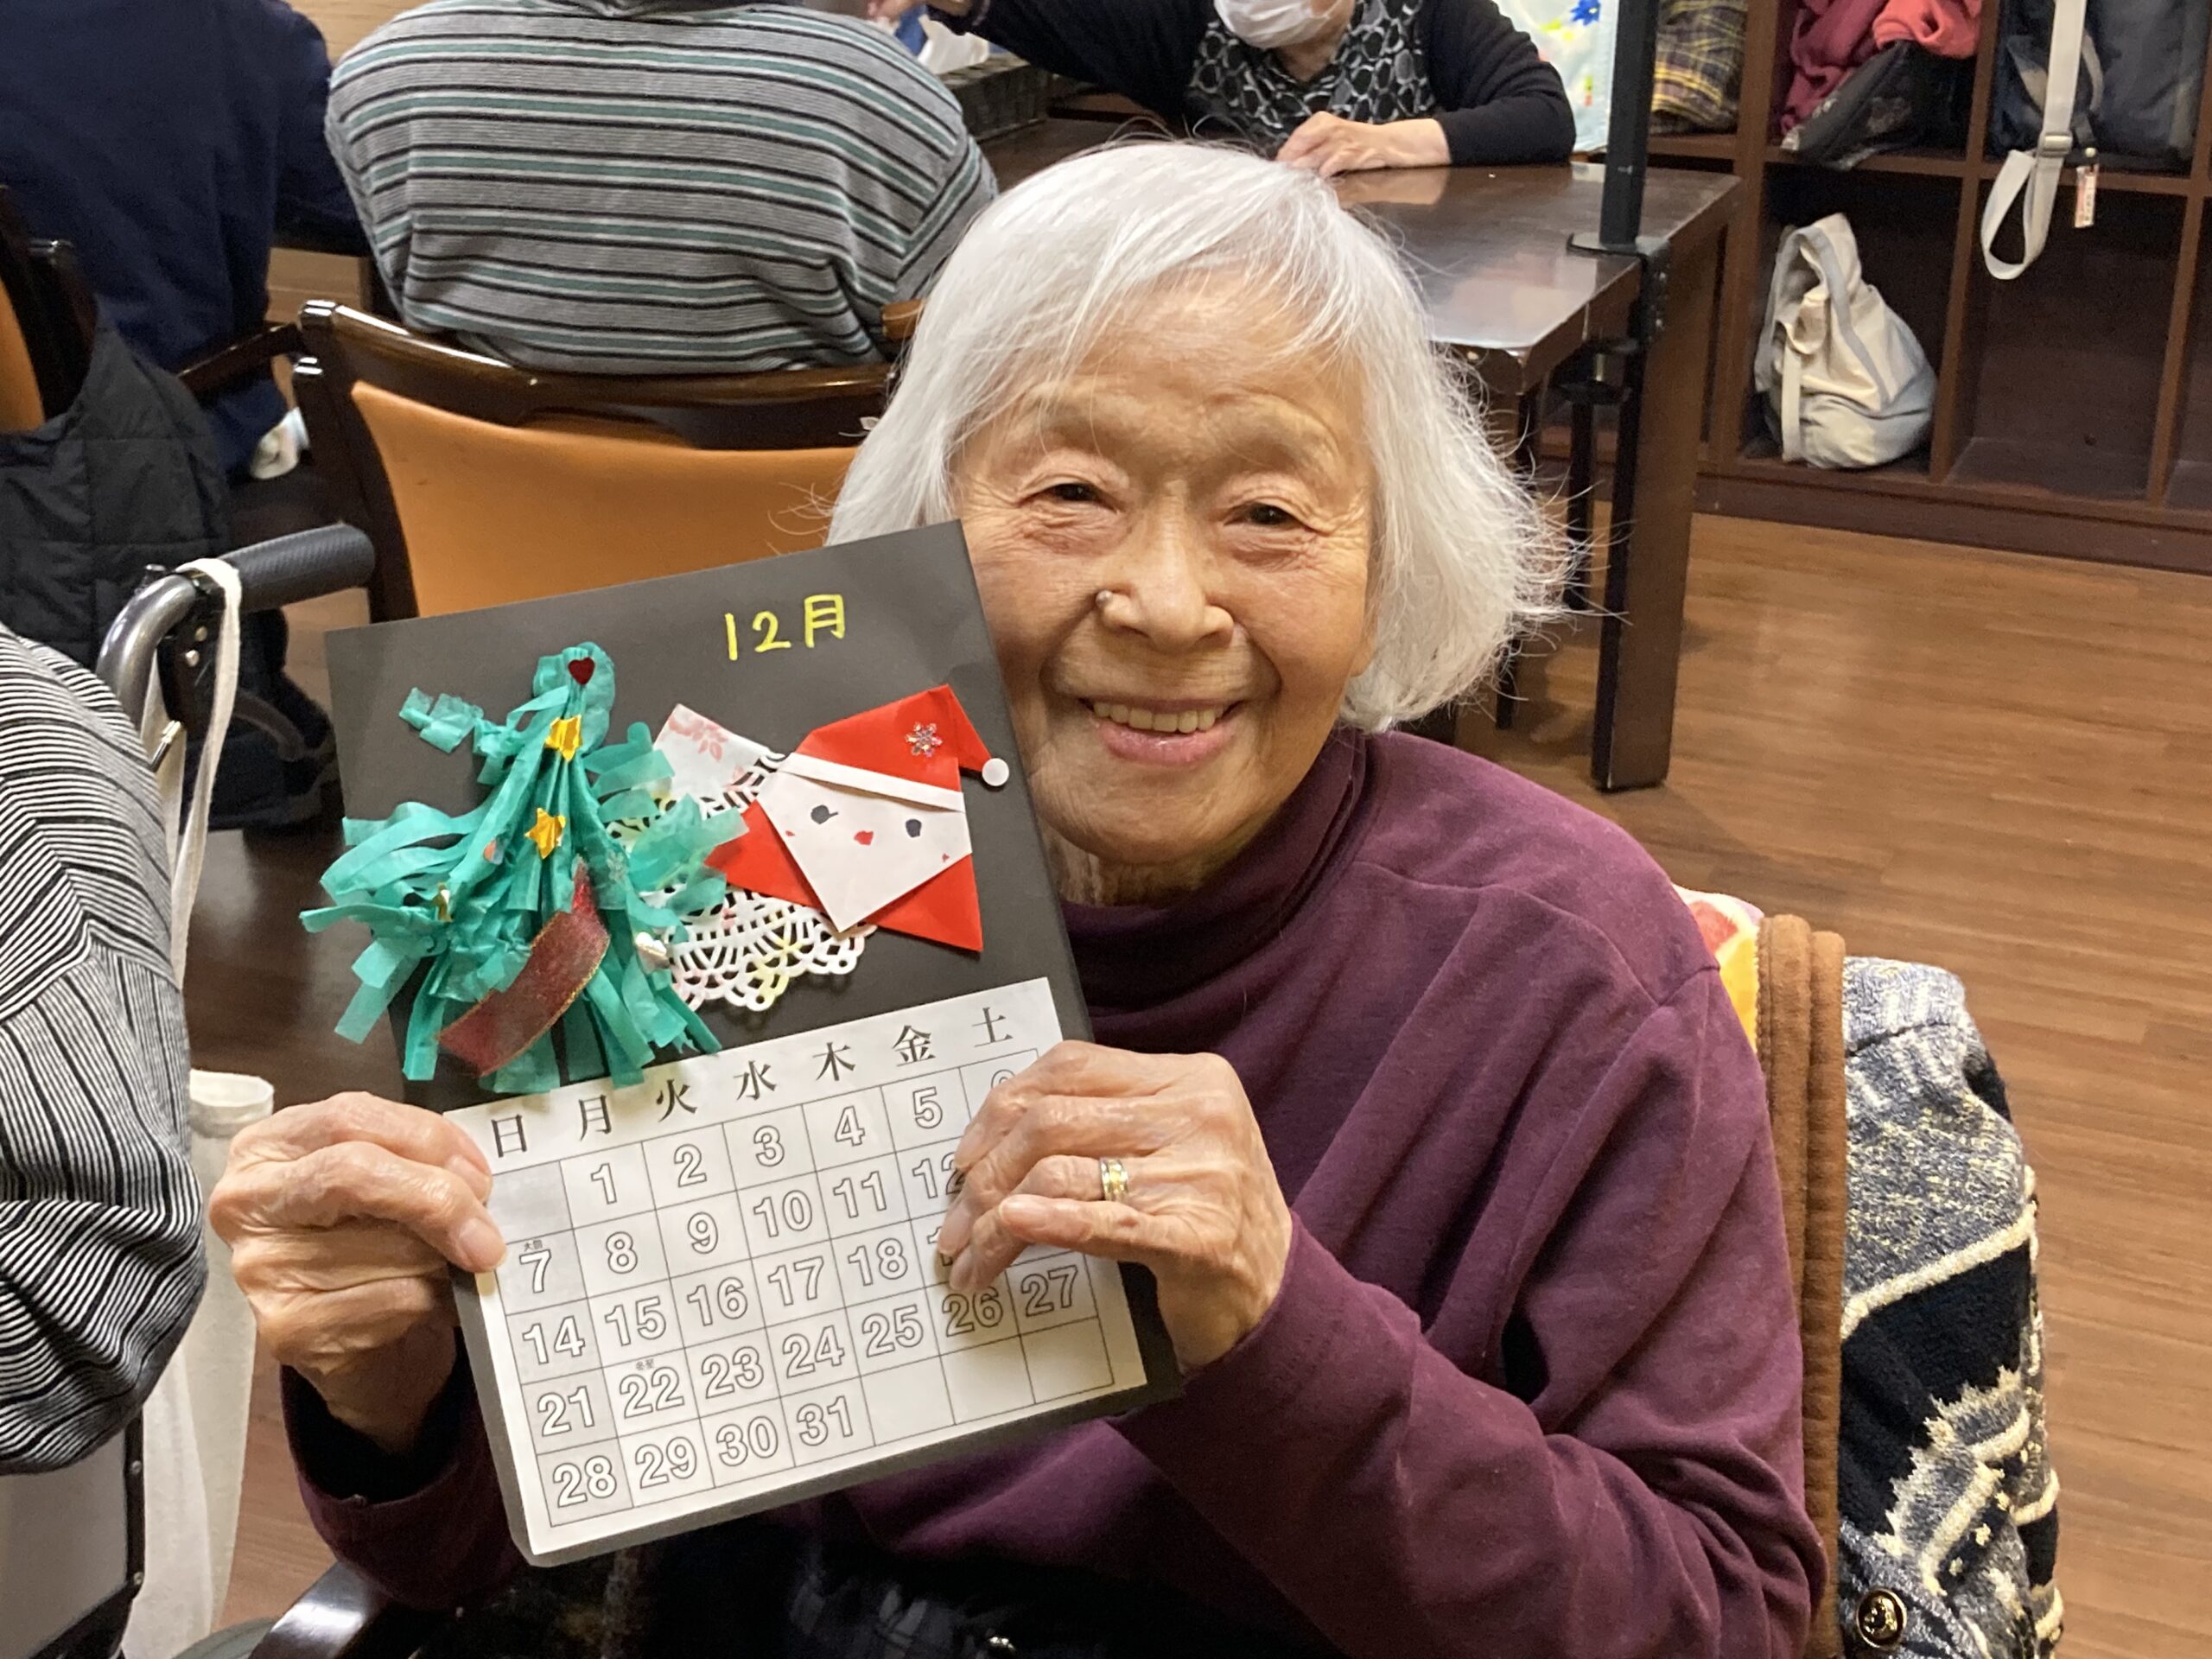 12月
日 月 火 水 木 金 土
1 2 3 4 5 6
大雪
7 8 9 10 11 12
14 15 16 17 18
冬至
21 22 23 24 25 26 27
28 29 30 31